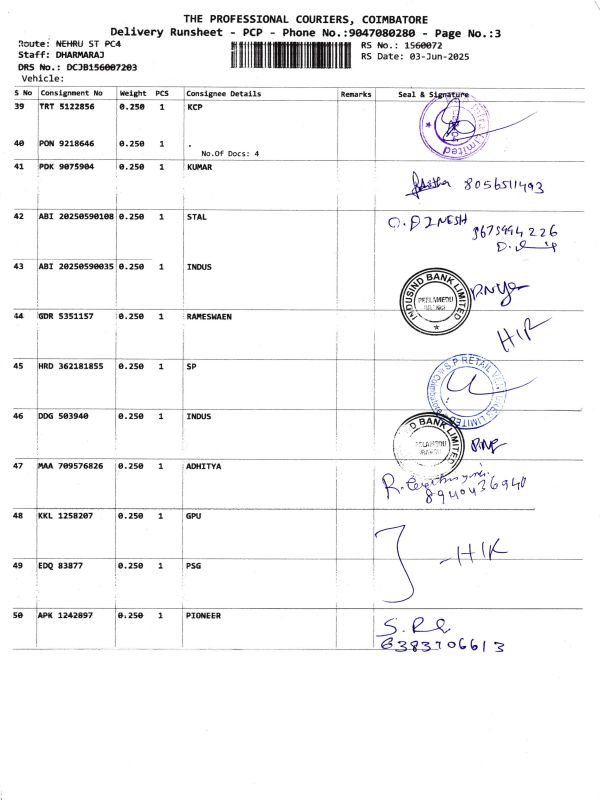 THE PROFESSIONAL COURIERS, COIMBATORE
Delivery Runsheet - PCP - Phone No.:9047080280 - Page No.:3
Route: NEHRU ST PC4 RS No.: 1560072
Staff: DHARMARAJ RS Date: 03-Jun-2025
DRS No.: DCJB156007203
Vehicle:
S No Consignment No Weight PCS Consignee Details Remarks Seal & Signature
39 TRT 5122856 0.250 1 KCP
40 PON 9218646 0.250 1 .
No.Of Docs: 4
41 PDK 9075904 0.250 1 KUMAR
8056511493
42 ABI 20250590108 0.250 1 STAL
O. DINESH
9675994226
43 ABI 20250590035 0.250 1 INDUS
INDUSIND BANK LIMITED
PEELAMEDU
BRANCH
44 GDR 5351157 0.250 1 RAMESWAEN
HIR
45 HRD 362181855 0.250 1 SP
S.P RETAIL VENTURES LIMITED
46 DDG 503940 0.250 1 INDUS
D BANK LIMITED
47 MAA 709576826 0.250 1 ADHITYA
8940436940
48 KKL 1258207 0.250 1 GPU
-HIR
49 EDQ 83877 0.250 1 PSG
50 APK 1242897 0.250 1 PIONEER
6383706613